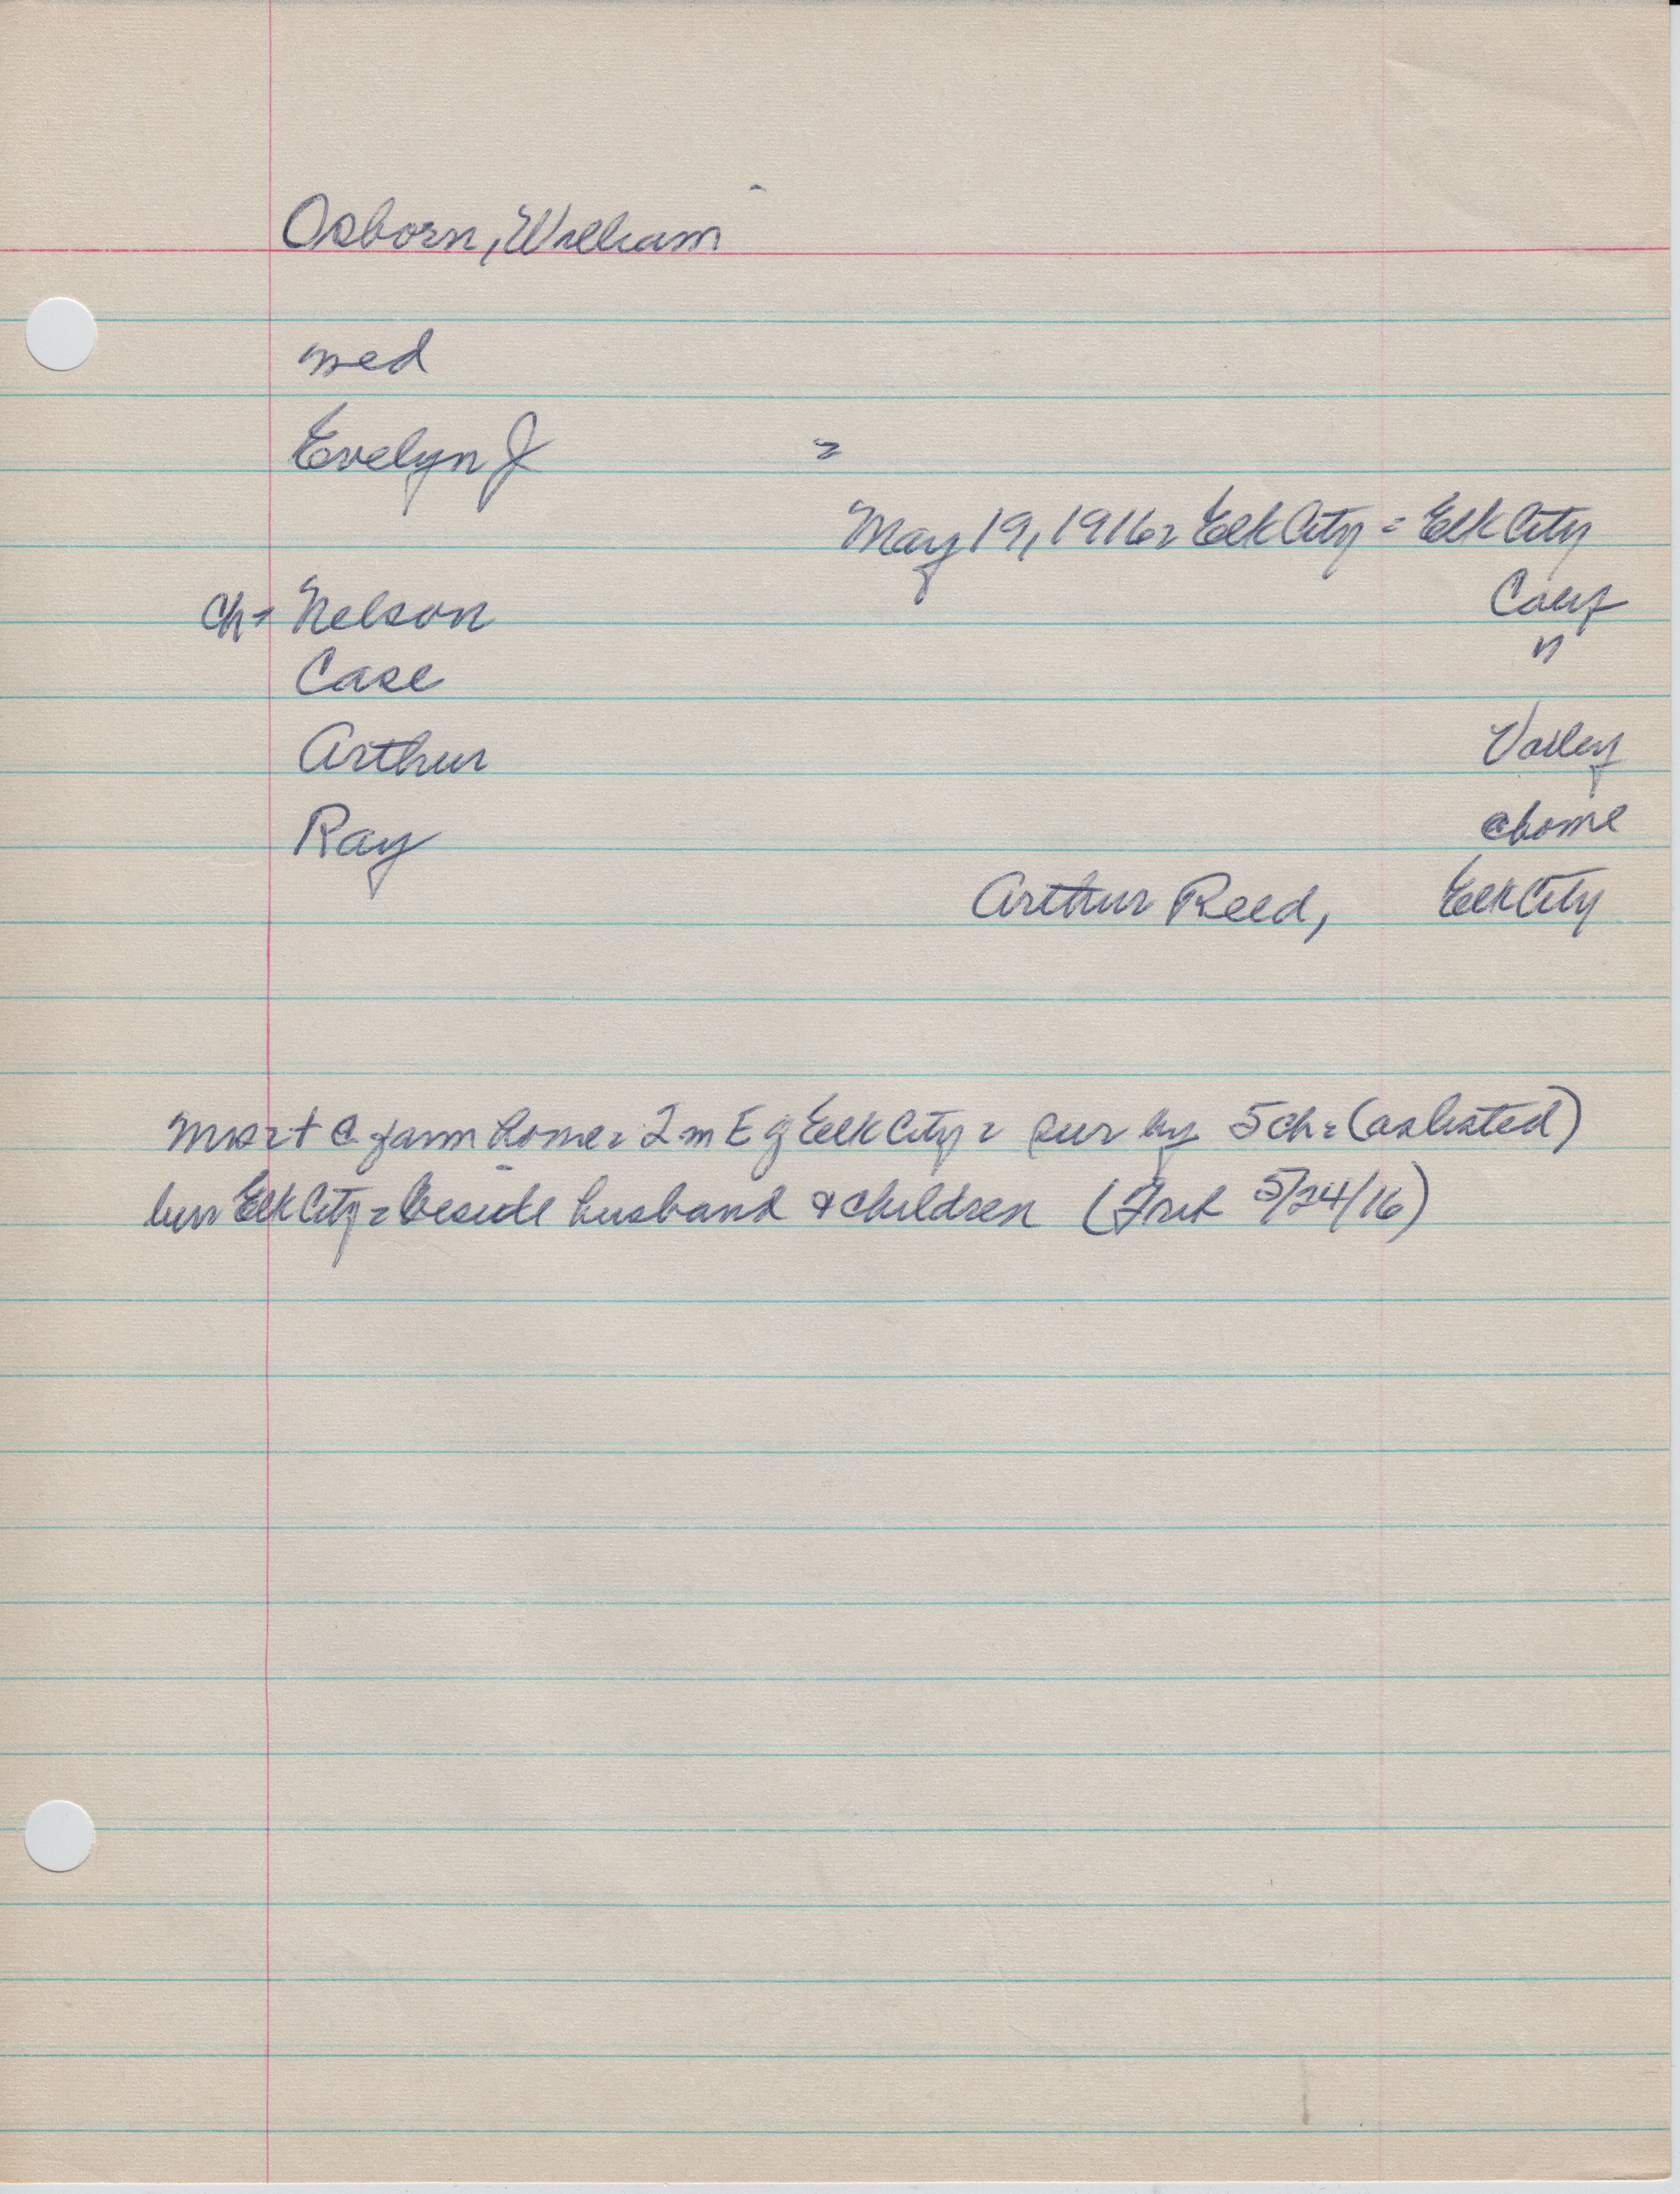 Osborn, William
med
Evelyn J =
May 19, 1916 = Elk City = Elk City
ch = Nelson Calif
Case "
Arthur Valley
Ray @home
Arthur Reed, Elk City
Mrs = + @ farm home = 2 m E of Elk City = sur by 5 ch = (as listed)
bur Elk City = beside husband & children ( 5/24/16)